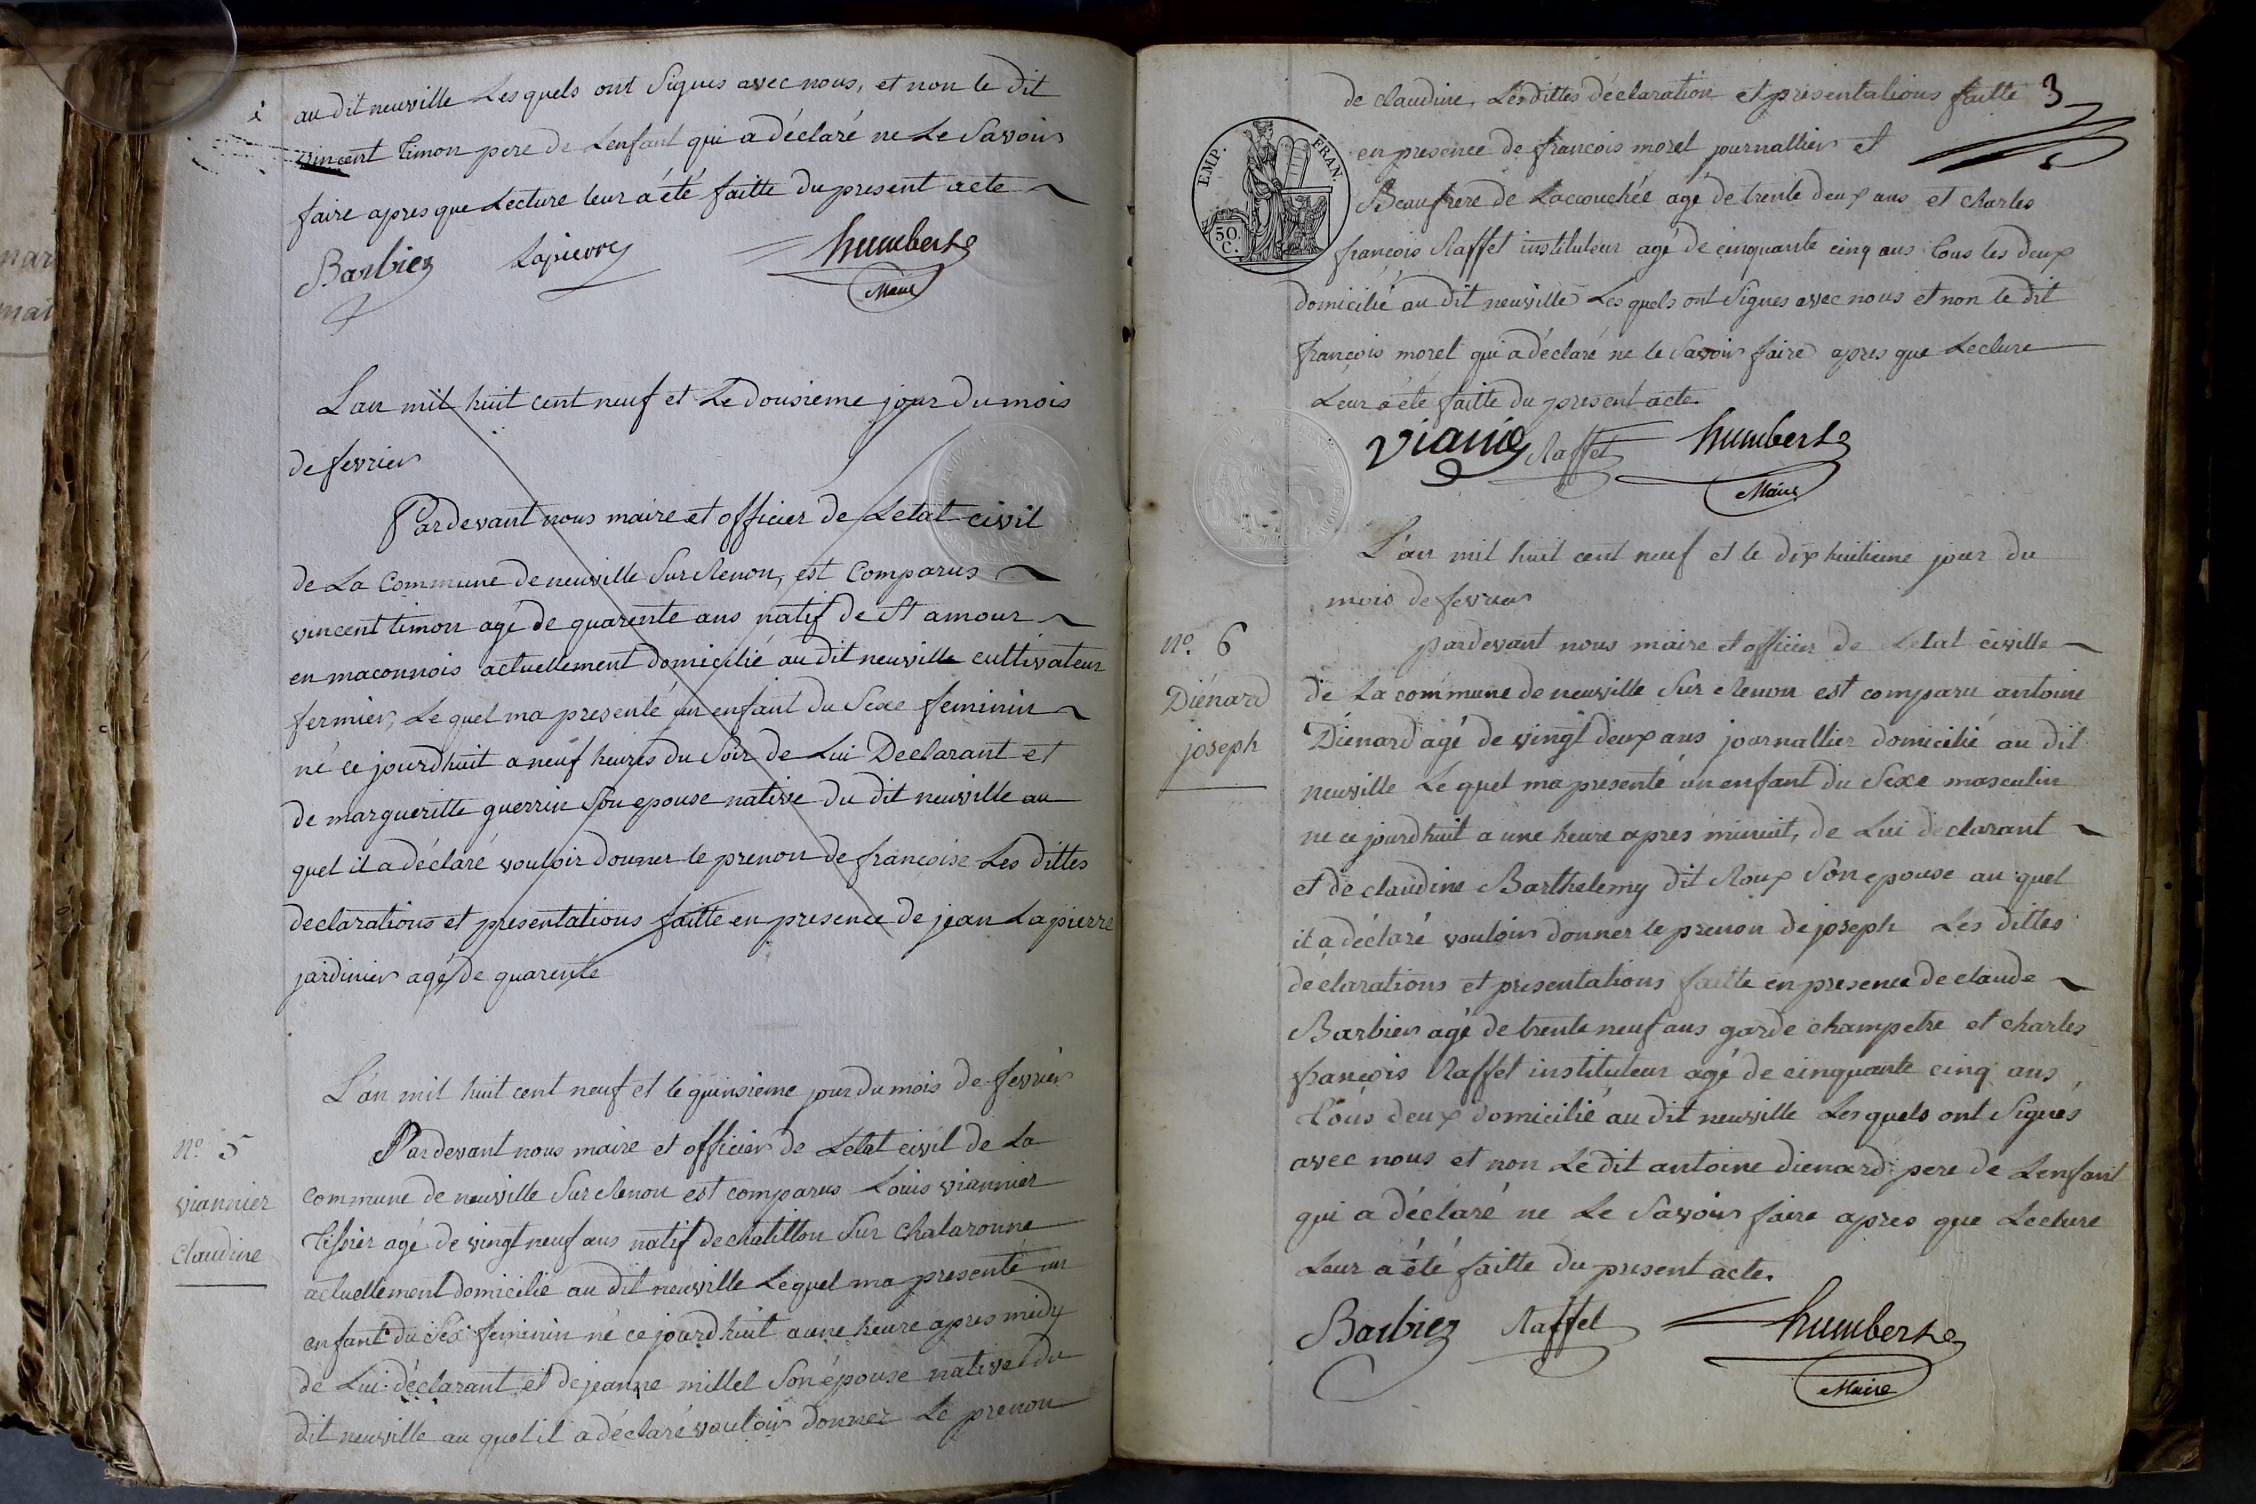 au dit neuville Lesquels ont Signes avec nous, et non le dit
vincent timon pere de Lenfant qui a déclaré ne Le Savoir
faire apres que Lecture leur a été faitte du present acte
Barbier Lapierre humbert
Maire
L'an mil huit cent neuf et Le dousieme jour du mois
de fevrier
Pardevant nous maire et officier de Letat civil
de La Commune de neuville Sur Renon, est Comparus
vincent timon agé de quarente ans natif de St amour
en maconnois actuellement domicilié au dit neuville cultivateur
fermier, Le quel ma presenté un enfant du Sexe feminin
né ce jourdhuit a neuf heures du Soir de Lui Declarant et
de margueritte guerrin Son epouse native du dit neuville au
quel il a déclaré vouloir donner le prenon de francoise Les dittes
declarations et presentations faitte en presence de jean Lapierre
jardinier agé de quarente
L'an mil huit cent neuf et le quinsieme jour du mois de fevrier
n° 5
Pardevant nous maire et officier de Letat civil de La
viannier
commune de neuville Sur Renon est comparus Louis viannier
claudine
tissier agé de vingt neuf ans natif de chatillon Sur Chalaronne
actuellement domicilié au dit neuville Lequel ma presenté un
enfant du Sex feminin né ce jourdhuit a une heure apres midy
de Lui déclarant et de jeanne millet Son épouse native du
dit neuville au quel il a déclaré vouloir donner Le prenon
3
de claudine, Les dittes déclaration et presentations faitte
EMP. FRAN.
50. C.
en presence de francois morel journallier et
Beaufrere de Laccouchée agé de trente deux ans et charles
francois Raffet instituteur agé de cinquante cinq ans tous les deux
domicilié au dit neuville Les quels ont Signes avec nous et non le dit
francois morel qui a déclaré ne le Savoir faire apres que Lecture
Leur a été faitte du present acte.
Raffet humbert
Maire
L'an mil huit cent neuf et le dix huitieme jour du
mois de fevrier
n° 6
pardevant nous maire et officier de Letat civille
Diénard
de La commune de neuville Sur Renon est comparu antoine
joseph
Diénard agé de vingt deux ans journallier domicilié au dit
neuville Le quel ma presenté un enfant du Sexe masculin
ne ce jourdhuit a une heure apres minuit, de Lui declarant
et de claudine Barthelemy dit Roux Son epouse au quel
il a déclaré vouloir donner le prenon de joseph Les dittes
déclarations et presentations faitte en presence de claude
Barbier agé de trente neuf ans garde champetre et charles
francois Raffet instituteur agé de cinquante cinq ans
tous deux domicilié au dit neuville Les quels ont Signés
avec nous et non Le dit antoine dienard pere de Lenfant
qui a déclaré ne Le Savoir faire apres que Lecture
Leur a été faitte du present acte.
Barbier Raffet humbert
Maire